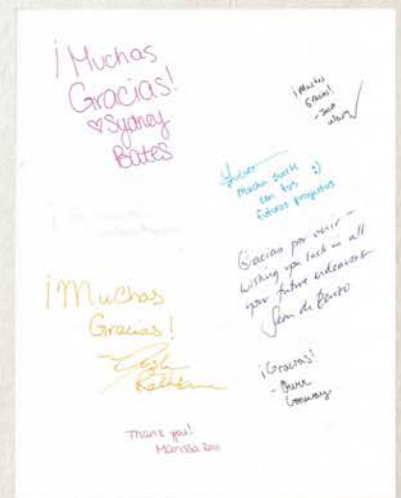 ¡Muchas
Gracias!
♡Sydney
Bates
¡Muchas
Gracias!
-
Mucha suerte :)
con tus
futuros proyectos
Gracias por venir -
wishing you luck in all
your future endeavors
Sean
¡Muchas
Gracias!
¡Gracias!
-
Thank you!
Marissa